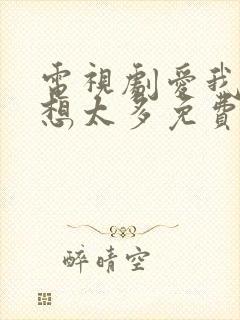 電視劇愛我
想太多免費
醉晴空